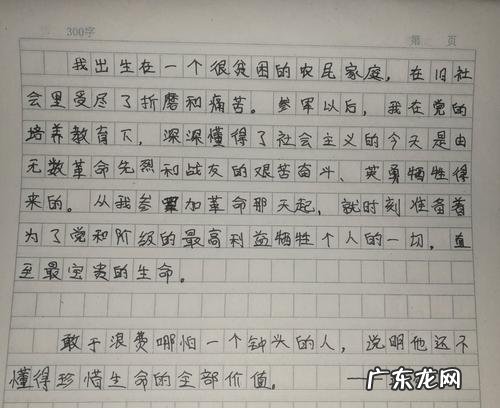 300字
第 页
我出生在一个很贫困的农民家庭，在旧社
会里受尽了折磨和痛苦。参军以后，我在党的
培养教育下，深深懂得了社会主义的今天是由
无数革命先烈和战友的艰苦奋斗、英勇牺牲得
来的。从我参加革命那天起，就时刻准备着
为了党和阶级的最高利益牺牲个人的一切，直
至最宝贵的生命。
敢于浪费哪怕一个钟头的人，说明他还不
懂得珍惜生命的全部价值。
广东龙网